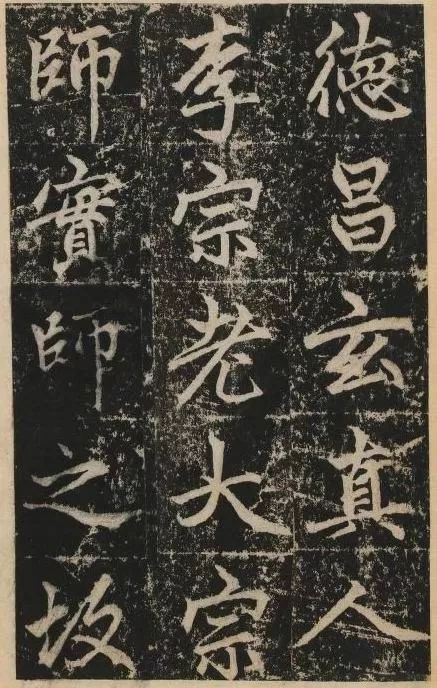 德昌玄真人
李宗老大宗
師實師之故